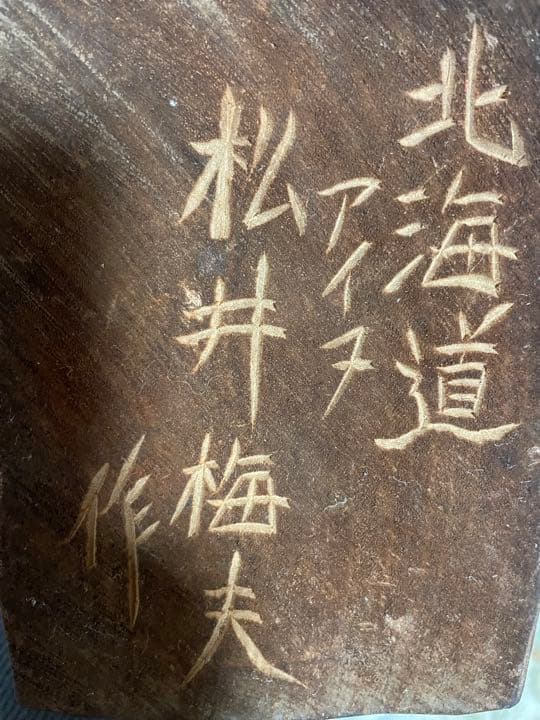 北海道
アイヌ
松井梅夫
作